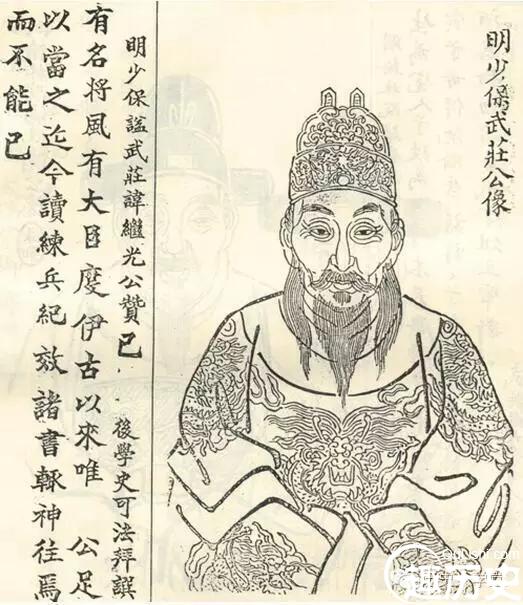 明少保武莊公像
明少保謚武莊諱繼光公贊已 後學史可法拜譔
有名将風有大臣度伊古以來唯 公足
以當之近今讀練兵紀效諸書輙神往焉
而不能已
趣历史